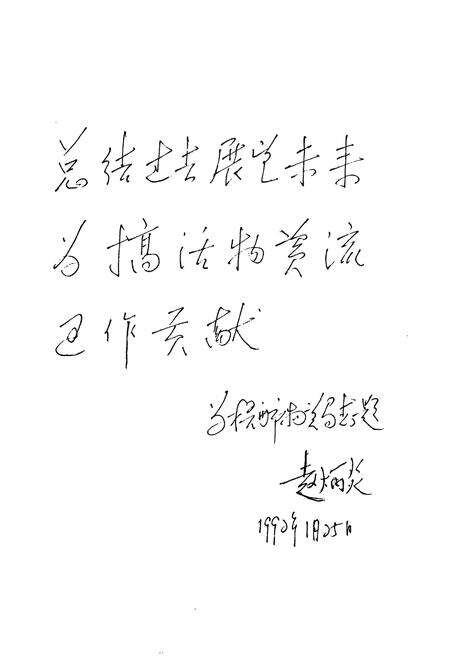 总结过去展望未来
为搞活物资流
通作贡献
为 市物资局志题
赵炳炎
1992年1月25日